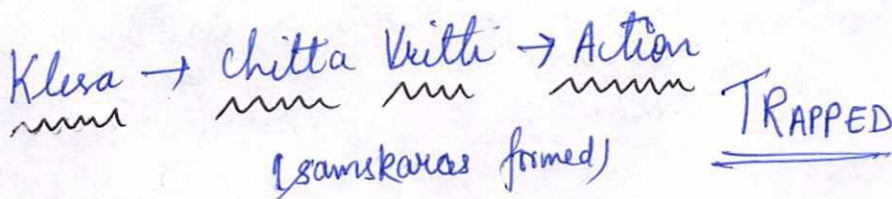 Klesa → Chitta Vritti → Action
TRAPPED
(samskaras formed)